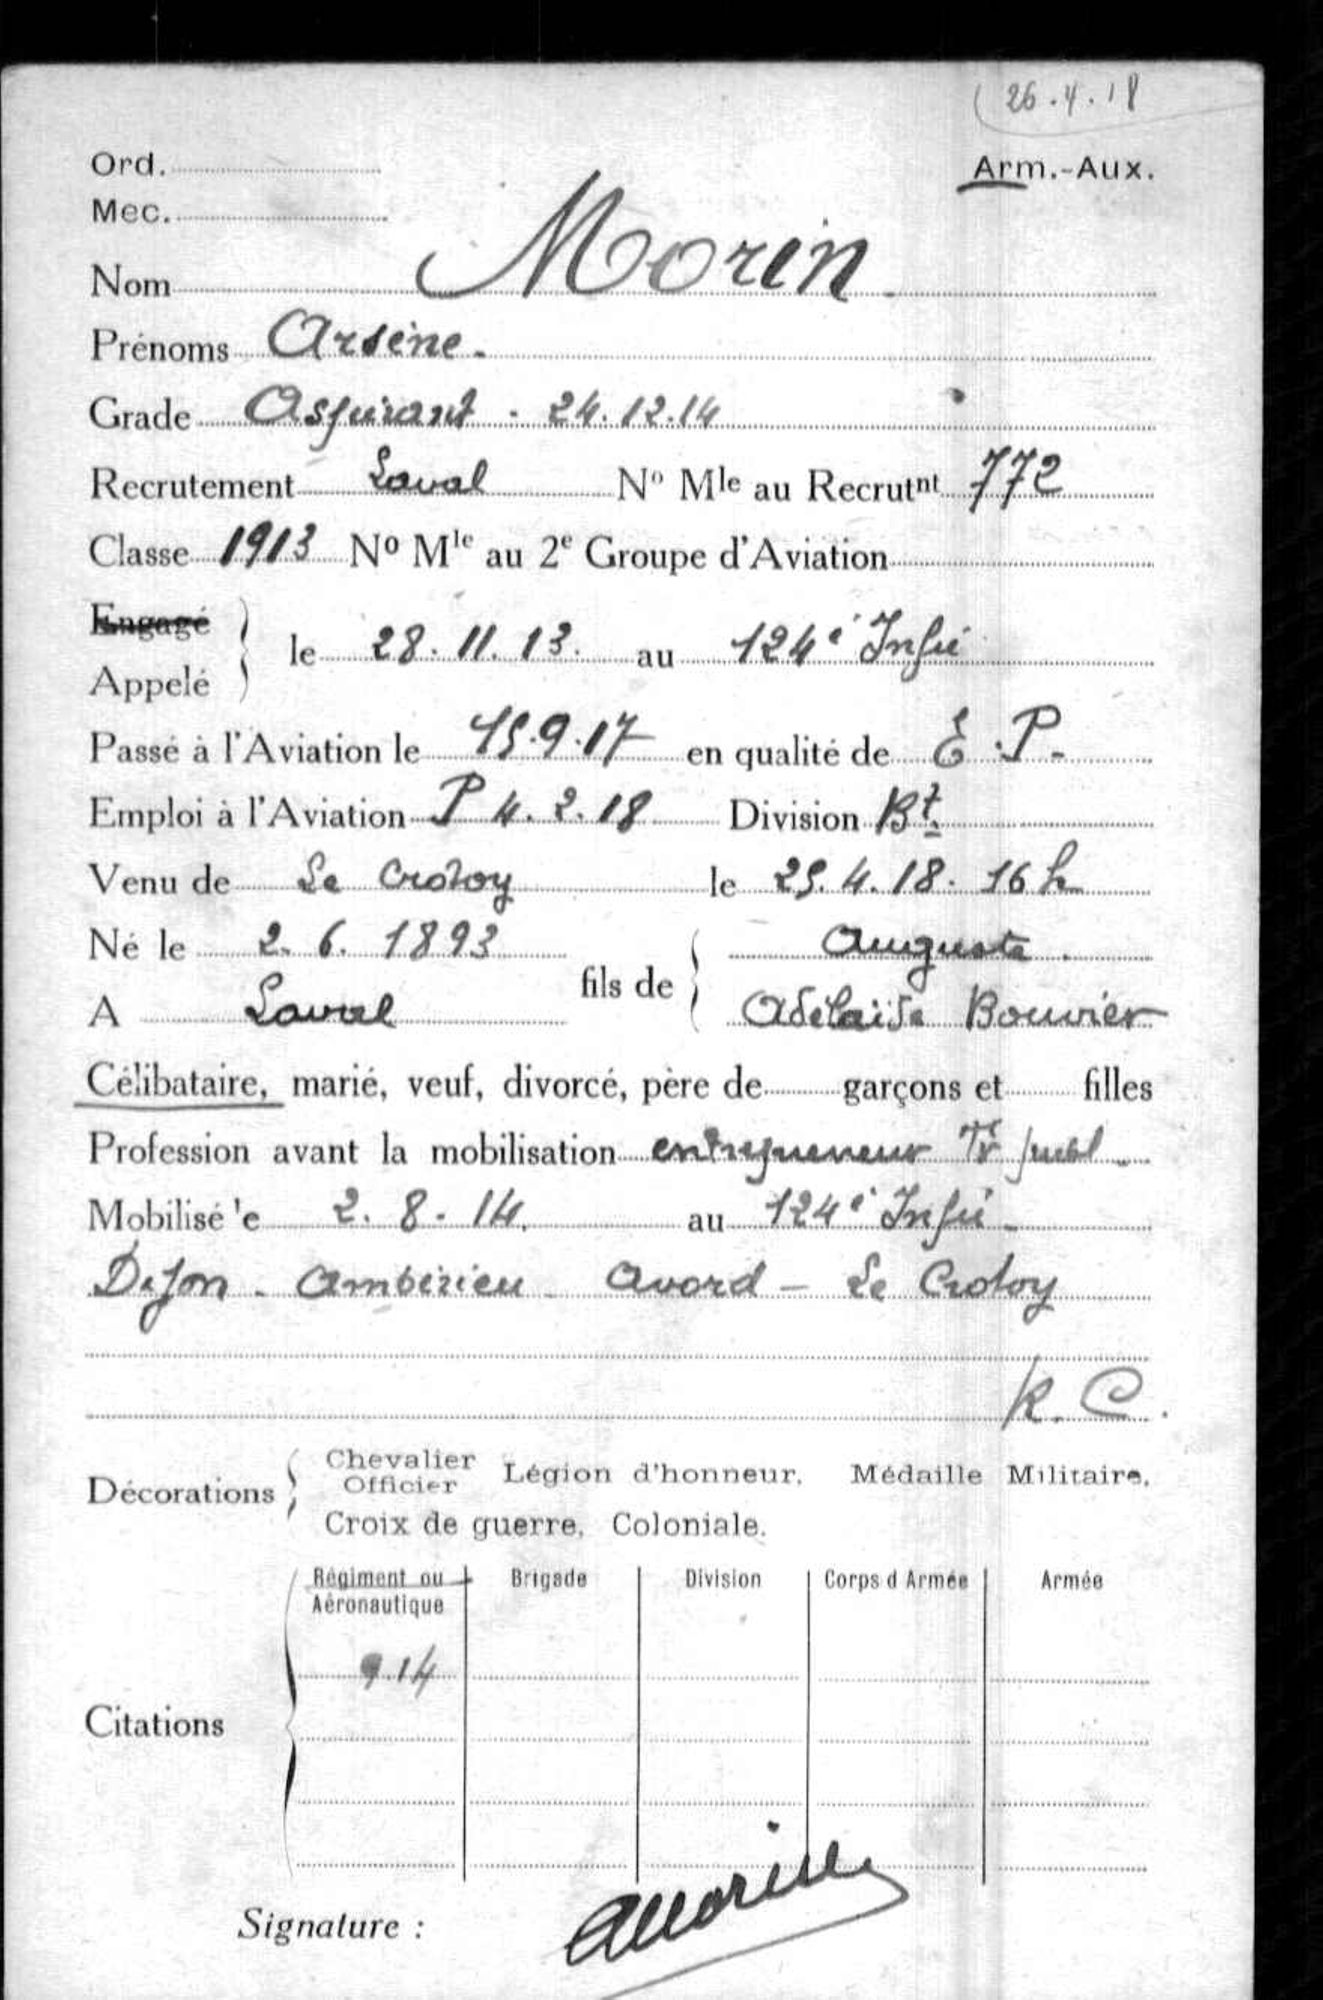 26.4.18
Ord.
Arm.-Aux.
Mec.
Nom Morin
Prénoms Arsène.
Grade Aspirant - 24.12.14
Recrutement Laval Nº Mle au Recrutnt 772
Classe 1913 Nº Mle au 2e Groupe d'Aviation
Engagé
Appelé
le 28.11.13. au 124e Infie
Passé à l'Aviation le 15.9.17 en qualité de E.P.
Emploi à l'Aviation P 4.2.18 Division Bt.
Venu de Le Crotoy le 25.4.18. 16 h
Né le 2.6.1893
fils de
Auguste
A Laval
Adélaïde Bouvier
Célibataire, marié, veuf, divorcé, père de garçons et filles
Profession avant la mobilisation entrepreneur Tx publ.
Mobilisé le 2.8.14. au 124e Infie
Dijon - Ambérieu - Avord - Le Crotoy
R.C.
Décorations
Chevalier
Officier
Légion d'honneur, Médaille Militaire,
Croix de guerre, Coloniale.
Régiment ou
Aéronautique
Brigade Division Corps d Armée Armée
9.14
Citations
Signature :
AMorin